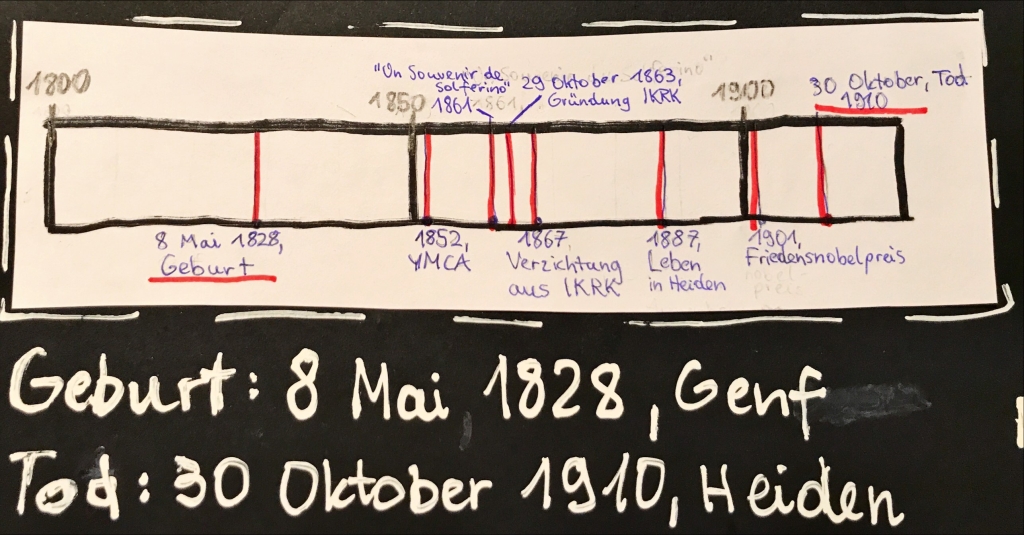 1800
1850
1900
"Un Souvenir de
Solferino"
1861
29 Oktober 1863,
Gründung IKRK
30 Oktober, Tod
1910
8 Mai 1828,
Geburt
1852,
YMCA
1867,
Verzichtung
aus IKRK
1887,
Leben
in Heiden
1901,
Friedensnobelpreis
Geburt: 8 Mai 1828, Genf
Tod: 30 Oktober 1910, Heiden